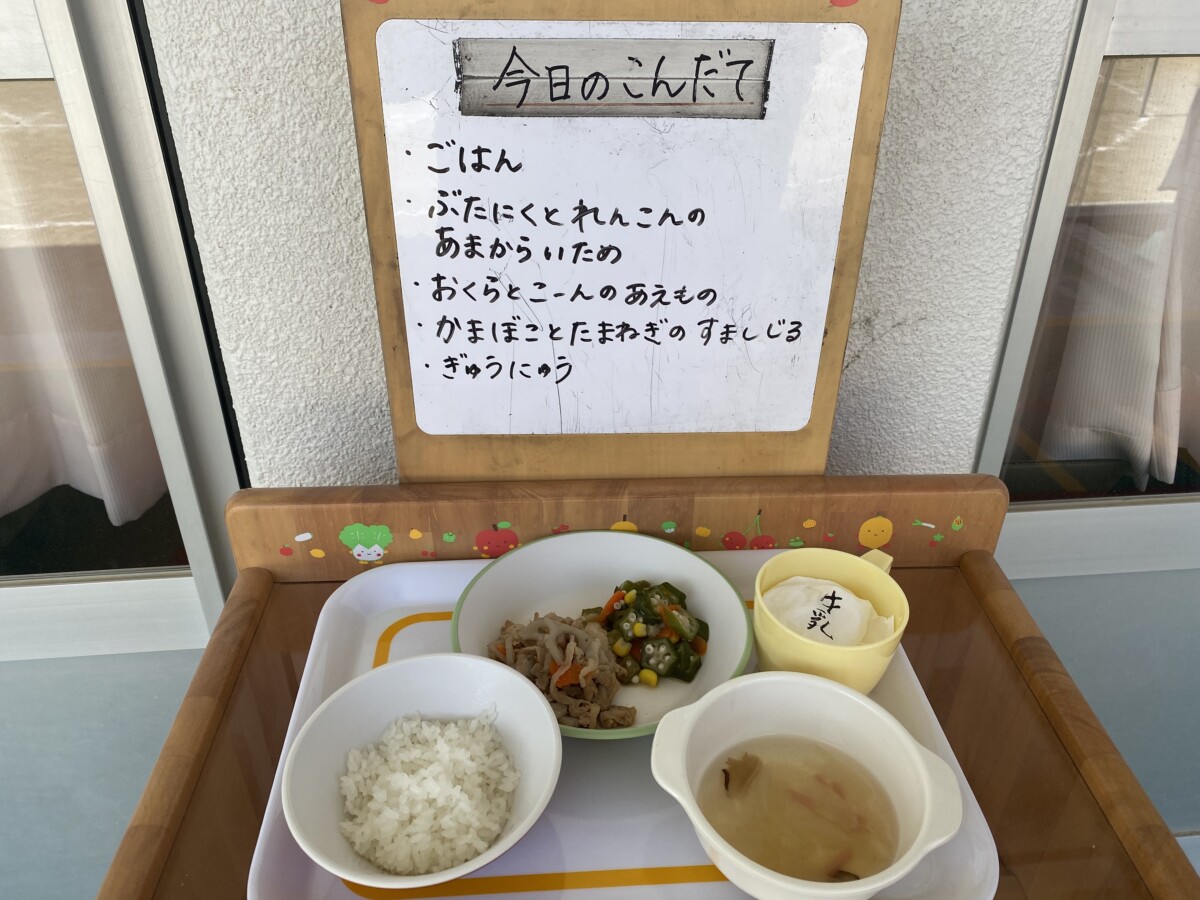 今日のこんだて
・ごはん
・ぶたにくとれんこんの
あまからいため
・おくらとこーんのあえもの
・かまぼことたまねぎのすましじる
・ぎゅうにゅう
牛乳